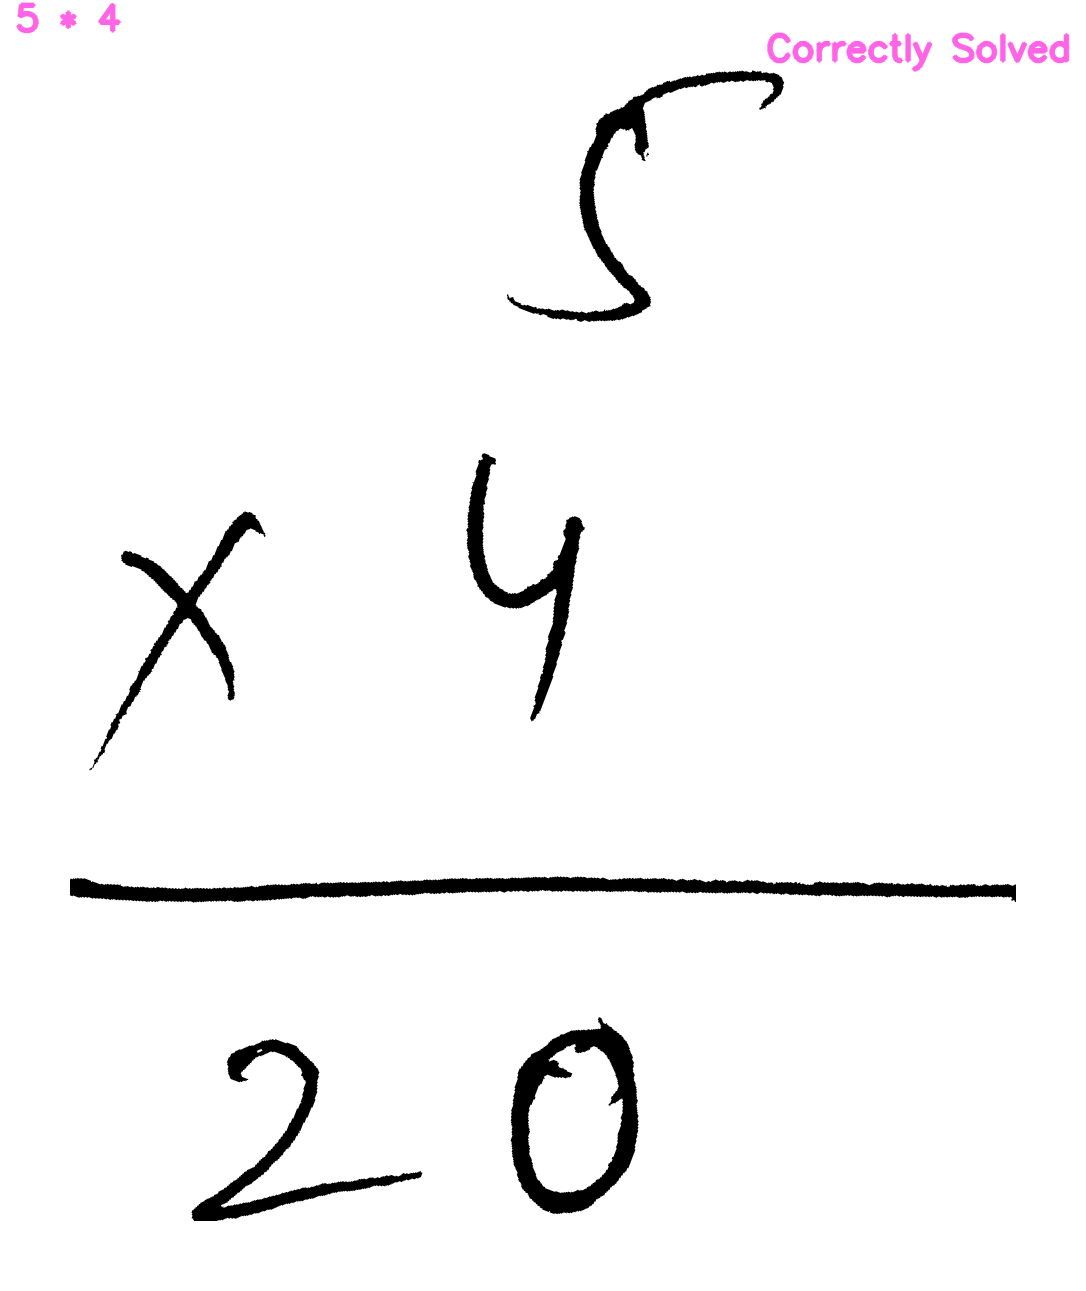 5 * 4
Correctly Solved
5
x 4
20